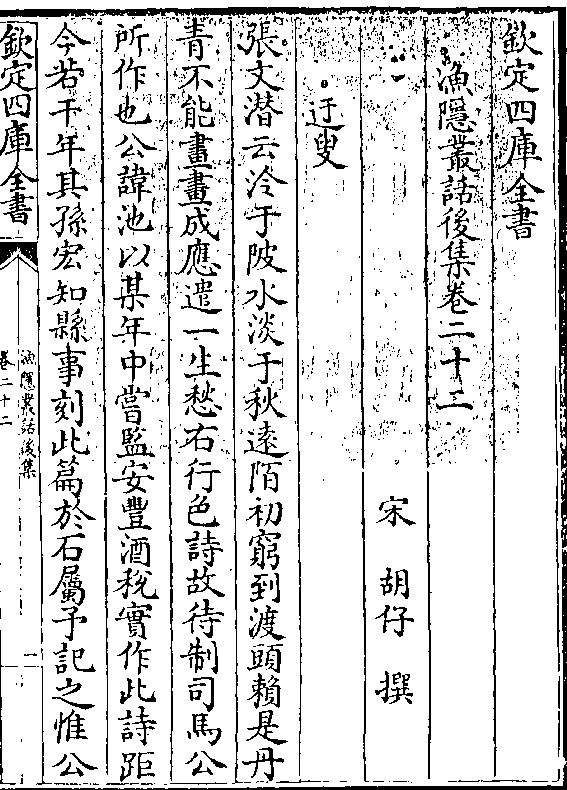 欽定四庫全書
漁隱叢話後集卷二十二
宋　胡仔　撰
迂叟
張文潛云冷于陂水淡于秋遠陌初窮到渡頭賴是丹
青不能畫畫成應遣一生愁右行色詩故待制司馬公
所作也公諱池以某年中嘗監安豐酒稅實作此詩距
今若干年其孫宏知縣事刻此篇於石屬予記之惟公
欽定四庫全書
漁隱叢話後集
卷二十二
一